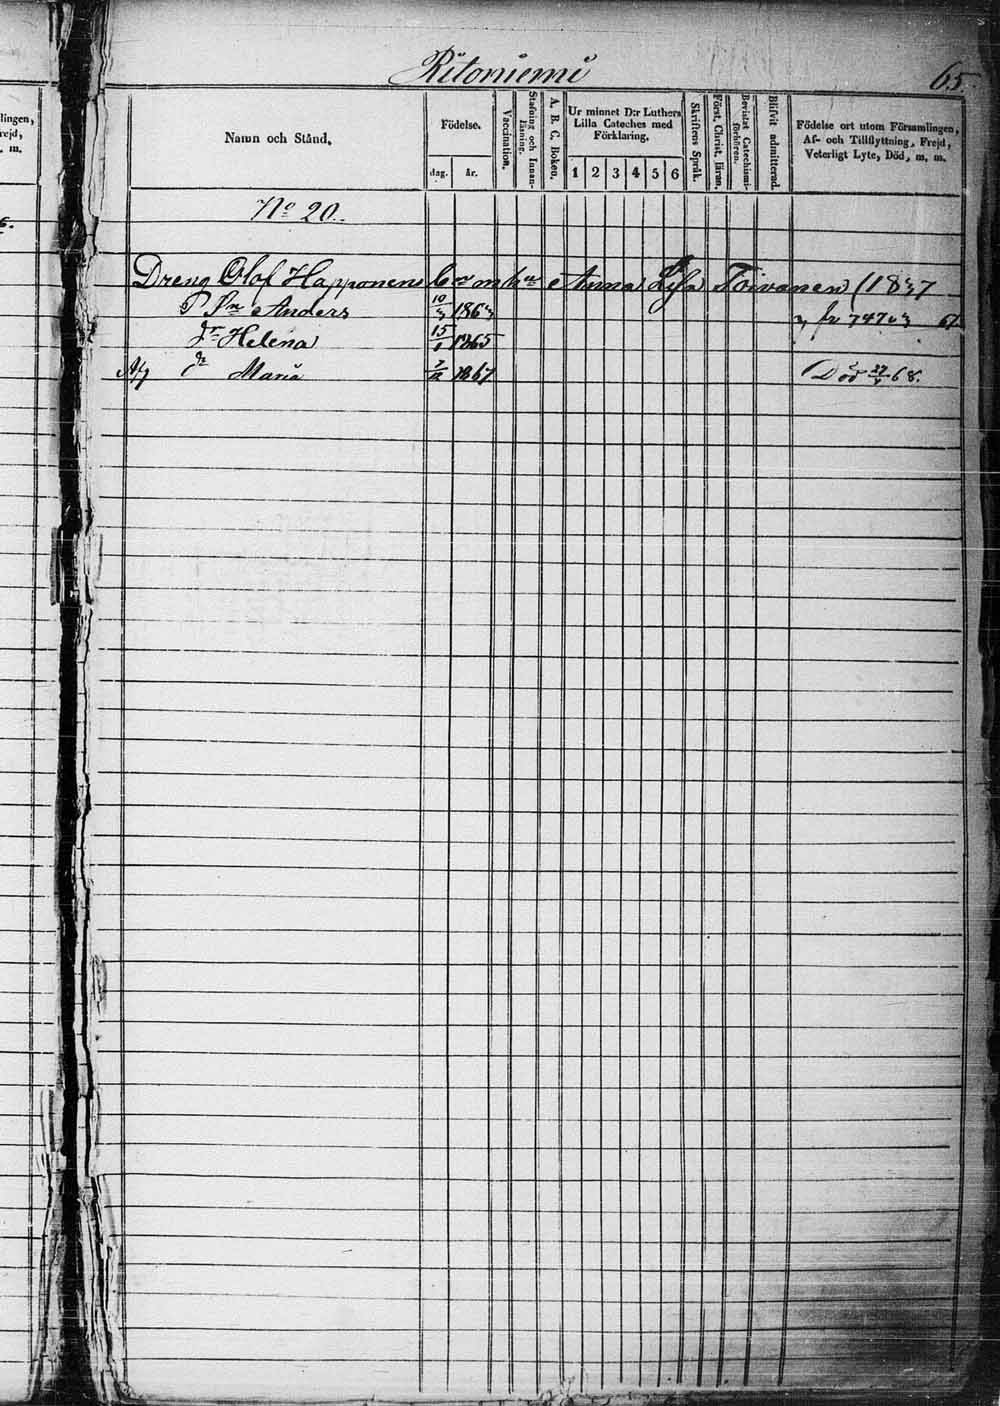 Ritoniemi
65
lingen,
rejd,
. m.
Namn och Stånd.
Födelse.
dag.
år.
Vaccination.
Stafning och Innan-
läsning.
A. B. C. Boken.
Ur minnet D:r Luthers
Lilla Cateches med
Förklaring.
1 2 3 4 5 6
Skriftens Språk.
Först. Christ. läran.
Bevistat Catechismi-
förhören.
Blifvit admitterad.
Födelse ort utom Församlingen,
Af- och Tillflyttning, Frejd,
Veterligt Lyte, Död, m. m.
6.
No 20.
Dreng Olof Happonens Anna Lisa Toivanen (1837
Anders 10/3 1863 fr 747 67
Helena 15/1 1865
Maria 1867 Död 68.